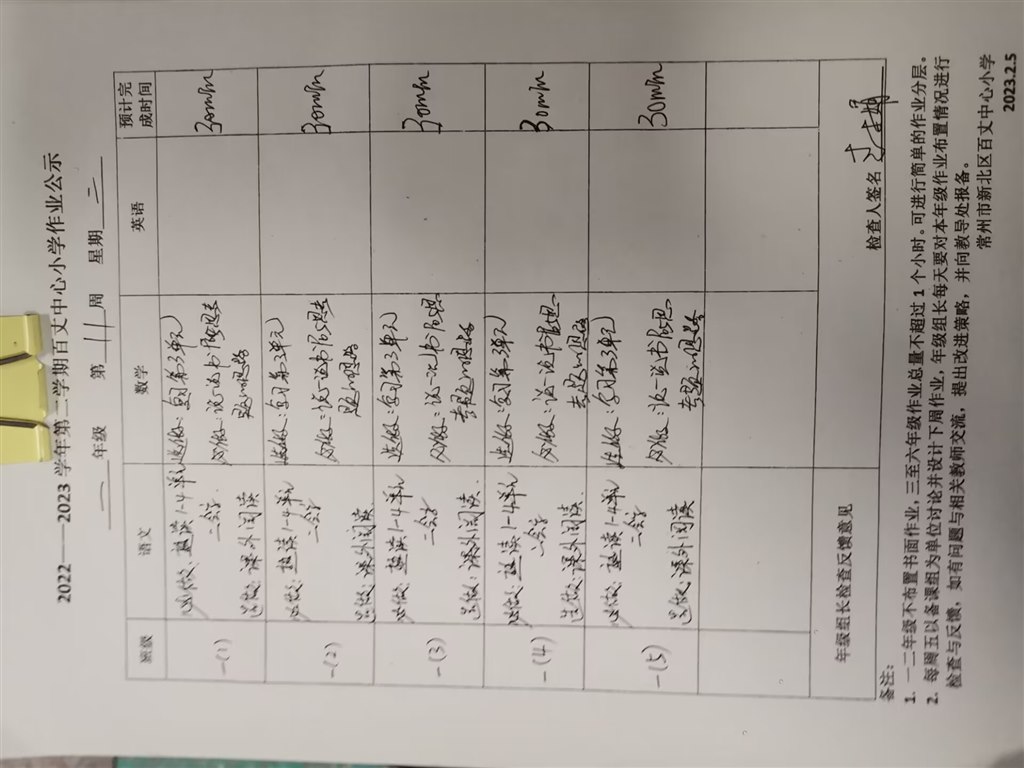 2022——2023 学年第二学期百丈中心小学作业公示
一 年级 第 11 周 星期 二
班级 语文 数学 英语 预计完成时间
一(1) 必做：熟读1-4单元 选做：复习第3单元 30min
二会字 必做：说一说书
选做：课外阅读
一(2) 必做：熟读1-4单元 选做：复习第3单元 30min
二会字 必做：说一说书
选做：课外阅读
一(3) 必做：熟读1-4单元 选做：复习第3单元 30min
二会字 必做：说一说书
选做：课外阅读
一(4) 必做：熟读1-4单元 选做：复习第3单元 30min
二会字 必做：说一说书
选做：课外阅读
一(5) 必做：熟读1-4单元 选做：复习第3单元 30min
二会字 必做：说一说书
选做：课外阅读
年级组长检查反馈意见 检查人签名
备注：
1. 一二年级不布置书面作业，三至六年级作业总量不超过 1 个小时。可进行简单的作业分层。
2. 每周五以备课组为单位讨论并设计下周作业，年级组长每天要对本年级作业布置情况进行
检查与反馈，如有问题与相关教师交流，提出改进策略，并向教导处报备。
常州市新北区百丈中心小学
2023.2.5